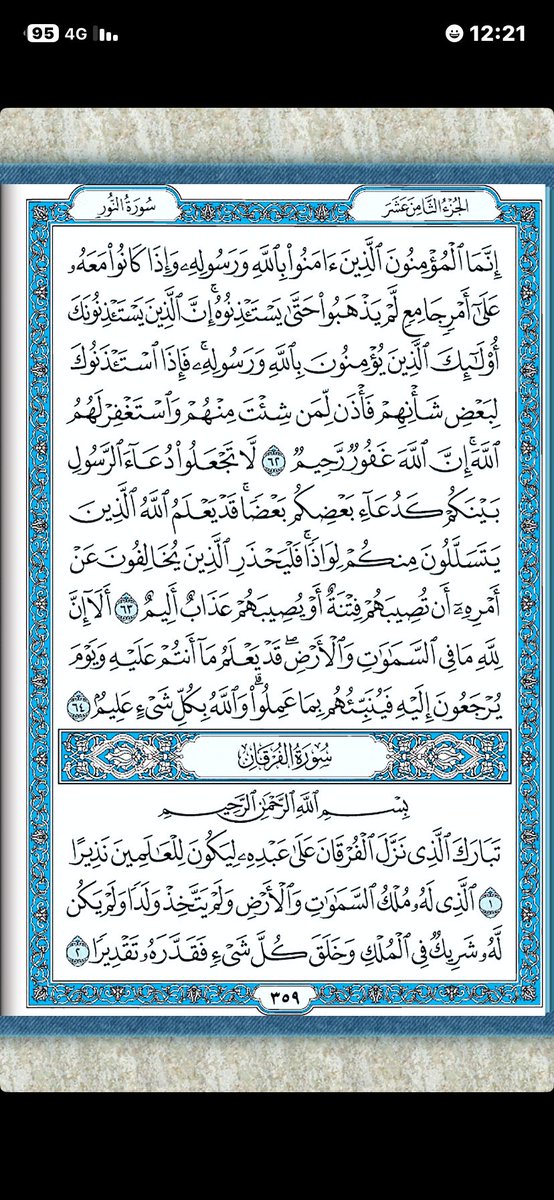 95 4G 12:21
الجُزءُ الثَّامِنَ عَشَرَ سُورَةُ النُّورِ
إِنَّمَا ٱلۡمُؤۡمِنُونَ ٱلَّذِينَ ءَامَنُواْ بِٱللَّهِ وَرَسُولِهِۦ وَإِذَا كَانُواْ مَعَهُۥ
عَلَىٰٓ أَمۡرٖ جَامِعٖ لَّمۡ يَذۡهَبُواْ حَتَّىٰ يَسۡتَـٔۡذِنُوهُۚ إِنَّ ٱلَّذِينَ يَسۡتَـٔۡذِنُونَكَ
أُوْلَـٰٓئِكَ ٱلَّذِينَ يُؤۡمِنُونَ بِٱللَّهِ وَرَسُولِهِۦۚ فَإِذَا ٱسۡتَـٔۡذَنُوكَ
لِبَعۡضِ شَأۡنِهِمۡ فَأۡذَن لِّمَن شِئۡتَ مِنۡهُمۡ وَٱسۡتَغۡفِرۡ لَهُمُ
ٱللَّهَۚ إِنَّ ٱللَّهَ غَفُورٞ رَّحِيمٞ ٦٢ لَّا تَجۡعَلُواْ دُعَآءَ ٱلرَّسُولِ
بَيۡنَكُمۡ كَدُعَآءِ بَعۡضِكُم بَعۡضٗاۚ قَدۡ يَعۡلَمُ ٱللَّهُ ٱلَّذِينَ
يَتَسَلَّلُونَ مِنكُمۡ لِوَاذٗاۚ فَلۡيَحۡذَرِ ٱلَّذِينَ يُخَالِفُونَ عَنۡ
أَمۡرِهِۦٓ أَن تُصِيبَهُمۡ فِتۡنَةٌ أَوۡ يُصِيبَهُمۡ عَذَابٌ أَلِيمٌ ٦٣ أَلَآ إِنَّ
لِلَّهِ مَا فِي ٱلسَّمَٰوَٰتِ وَٱلۡأَرۡضِۖ قَدۡ يَعۡلَمُ مَآ أَنتُمۡ عَلَيۡهِ وَيَوۡمَ
يُرۡجَعُونَ إِلَيۡهِ فَيُنَبِّئُهُم بِمَا عَمِلُواْۗ وَٱللَّهُ بِكُلِّ شَيۡءٍ عَلِيمٌ ٦٤
سُورَةُ الفُرۡقَانِ
بِسۡمِ ٱللَّهِ ٱلرَّحۡمَٰنِ ٱلرَّحِيمِ
تَبَارَكَ ٱلَّذِي نَزَّلَ ٱلۡفُرۡقَانَ عَلَىٰ عَبۡدِهِۦ لِيَكُونَ لِلۡعَٰلَمِينَ نَذِيرًا
١ ٱلَّذِي لَهُۥ مُلۡكُ ٱلسَّمَٰوَٰتِ وَٱلۡأَرۡضِ وَلَمۡ يَتَّخِذۡ وَلَدٗا وَلَمۡ يَكُن
لَّهُۥ شَرِيكٞ فِي ٱلۡمُلۡكِ وَخَلَقَ كُلَّ شَيۡءٖ فَقَدَّرَهُۥ تَقۡدِيرٗا ٢
٣٥٩